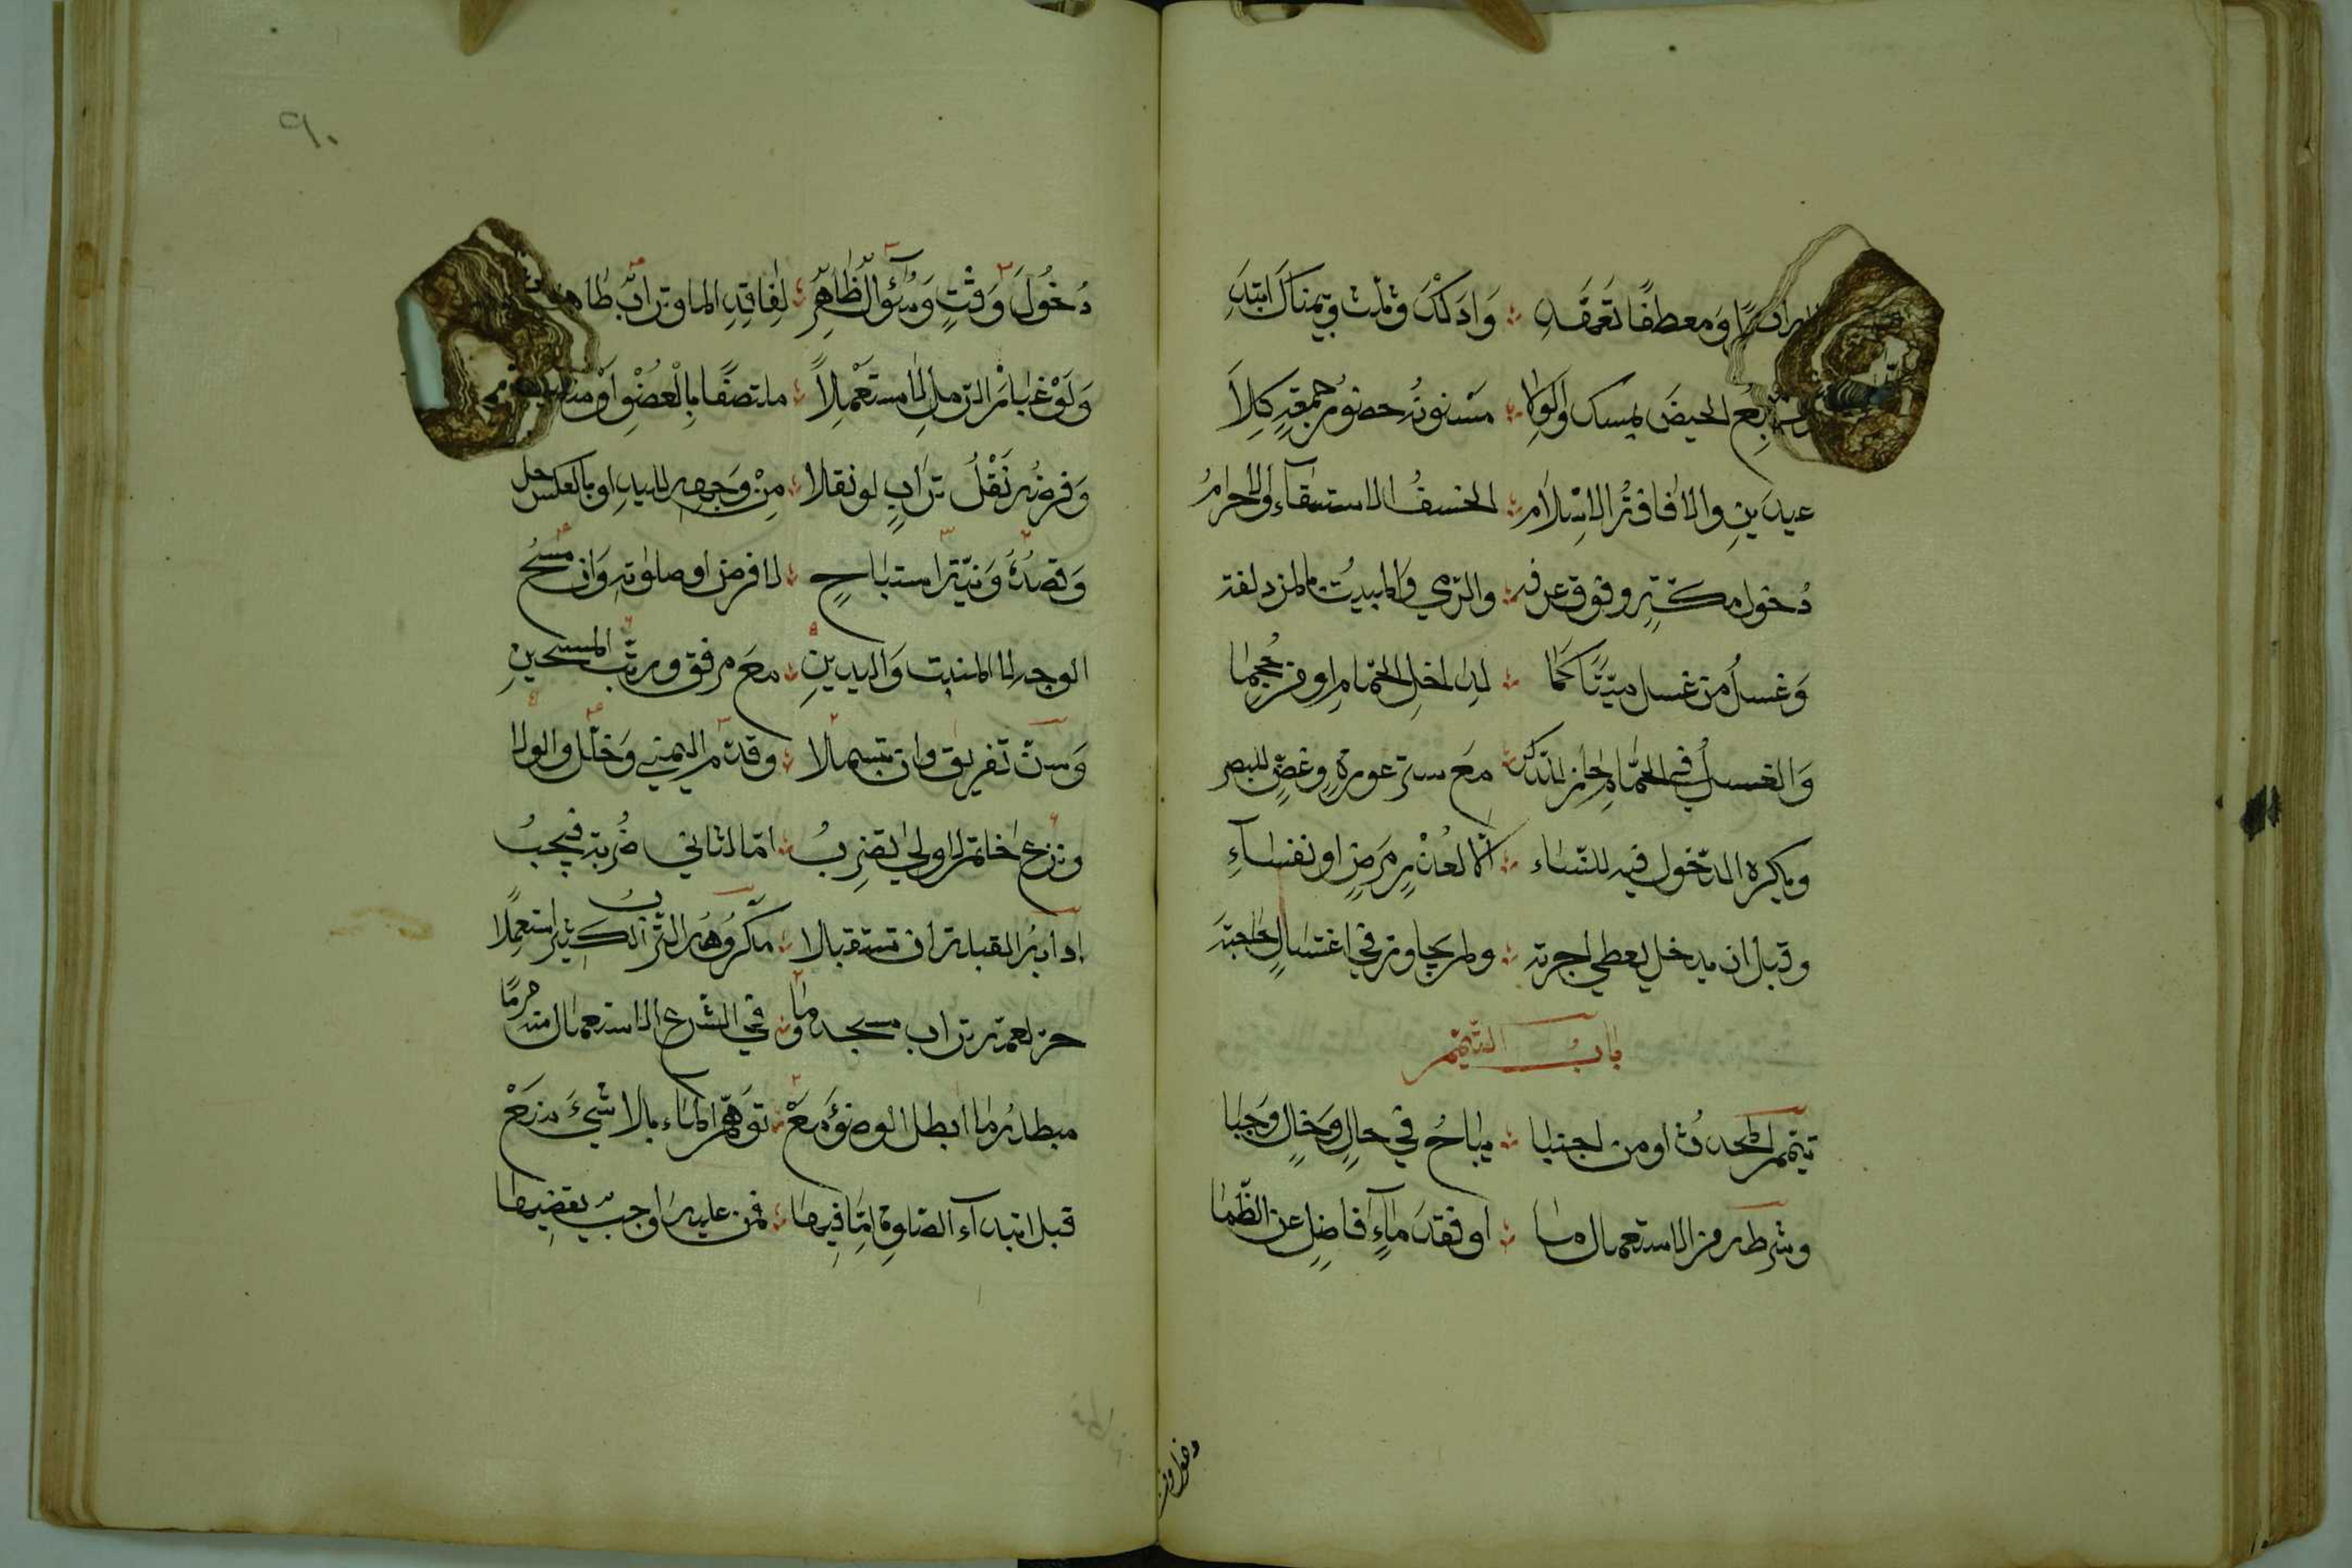 ومعطفا تعهد وادلك وثلث وبيمناك ابتد
تتبع الحيض بمسك والولا مسنونه حضور جمعة كلا
عيدين والافاقة الاسلام الخسف الاستسقاء والاحرام
دخول مكة وقوف عرفه والرمي والمبيت بالمزدلفة
وغسل من غسل ميتا كما لداخل الحمام او من حجما
والغسل في الحمام جاز للذكر مع ستر عورة وغض للبصر
ويكره الدخول فيه للنساء الا لعذر مرض او نفساء
وقبل ان يدخل يعطي اجرته ولم يجاوز في اغتسال حاجته
باب التيمم
تيمم المحدث او من اجنبا يباح في حال وحال وجبا
وشرطه خوف من الاستعمال ما او فقد ماء فاضل عن الظما
دخول
٩٠
دخول وقت وسؤال ظاهر لفاقد الما وتراب طاهر
ولو غبار الرمل لا مستعملا ملتصقا بالعضو او
وفرضه نقل تراب لو نقلا من وجهه لليد او بالعكس حل
وقصده ونية استباح لا فرض او صلوته وان مسح
الوجه لا المنبت واليدين مع مرفق ورتب المسحين
وسن تفريق وان تبسملا وقدم اليمنى وخلل والولا
ونزع خاتم لاولى يضرب اما لثاني ضربة فيجب
ادابه القبلة ان تستقبلا مكروهه الترب الكثير استعملا
حرامه تراب مسجد وما في الشرع الاستعمال منه حرما
مبطله ما ابطل الوضوء مع توهم الماء بلا شيء منع
قبل ابتداء الصلوة اما فيها فمن عليه واجب يقضيها